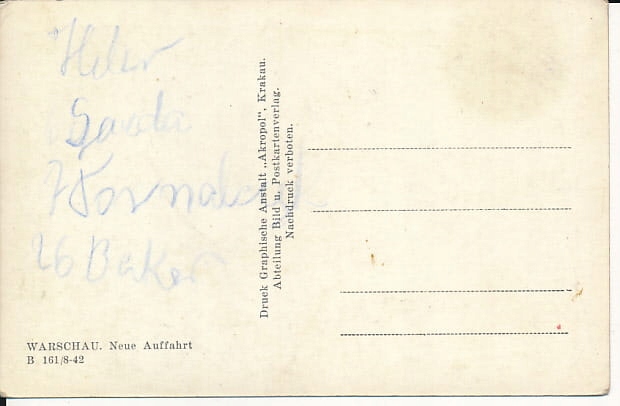 26 Baker
Druck Graphische Anstalt „Akropol", Krakau.
Abteilung Bild u. Postkartenverlag.
Nachdruck verboten.
WARSCHAU. Neue Auffahrt
B 161/8-42